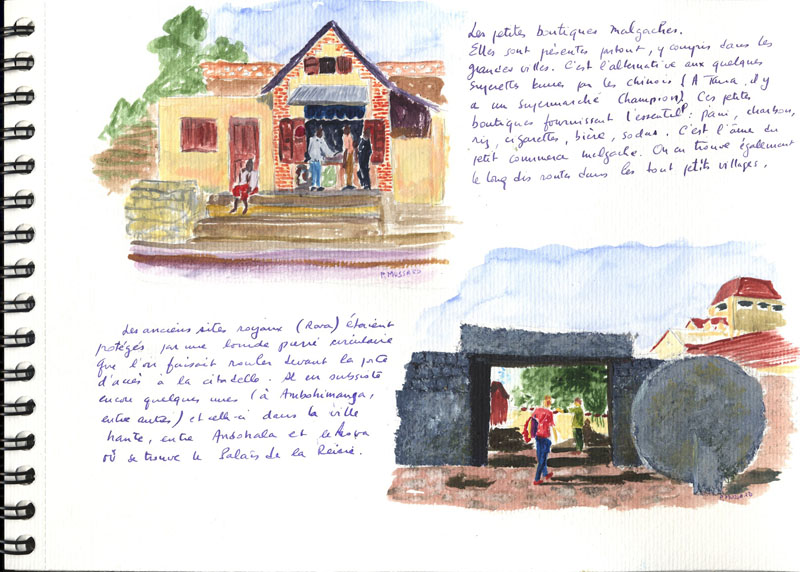 Les petites boutiques malgaches.
Elles sont présentes partout, y compris dans les
grandes villes. C'est l'alternative aux quelques
superettes tenues par les chinois (A Tana, il y
a un supermarché Champion) Ces petites
boutiques fournissent l'essentiel : pain, charbon,
riz, cigarettes, bière, sodas. C'est l'âme du
petit commerce malgache. On en trouve également
le long des routes dans les tout petits villages.
P. MUSSARD
Les anciens sites royaux (Rova) étaient
protégés par une lourde pierre circulaire
que l'on faisait rouler devant la porte
d'accès à la citadelle. Il en subsiste
encore quelques unes (à Ambohimanga,
entre autres) et celle-ci dans la ville
haute, entre Andohalo et le Rova
où se trouve le Palais de la Reine.